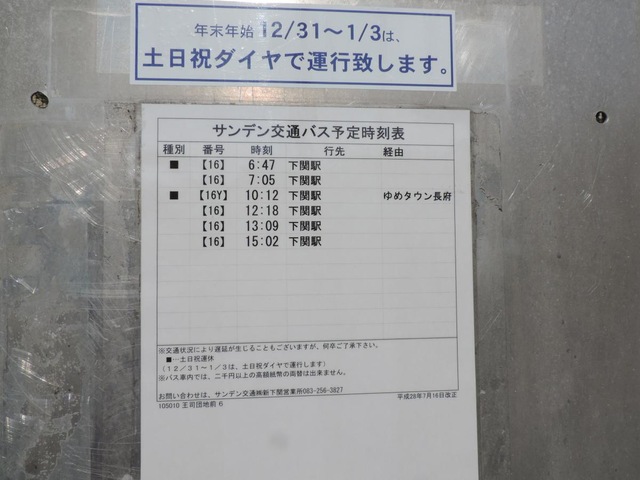 年末年始12/31～1/3は、
土日祝ダイヤで運行致します。
サンデン交通バス予定時刻表
種別 番号 時刻 行先 経由
■ 【16】 6:47 下関駅
【16】 7:05 下関駅
■ 【16Y】 10:12 下関駅 ゆめタウン長府
【16】 12:18 下関駅
【16】 13:09 下関駅
【16】 15:02 下関駅
※交通状況により遅延が生じることもございますが、何卒ご了承下さい。
■…土日祝運休
(12/31～1/3は、土日祝ダイヤで運行します)
※バス車内では、二千円以上の高額紙幣の両替は出来ません。
お問い合わせは、サンデン交通㈱新下関営業所083-256-3827
105010 王司団地前 6 平成28年7月16日改正